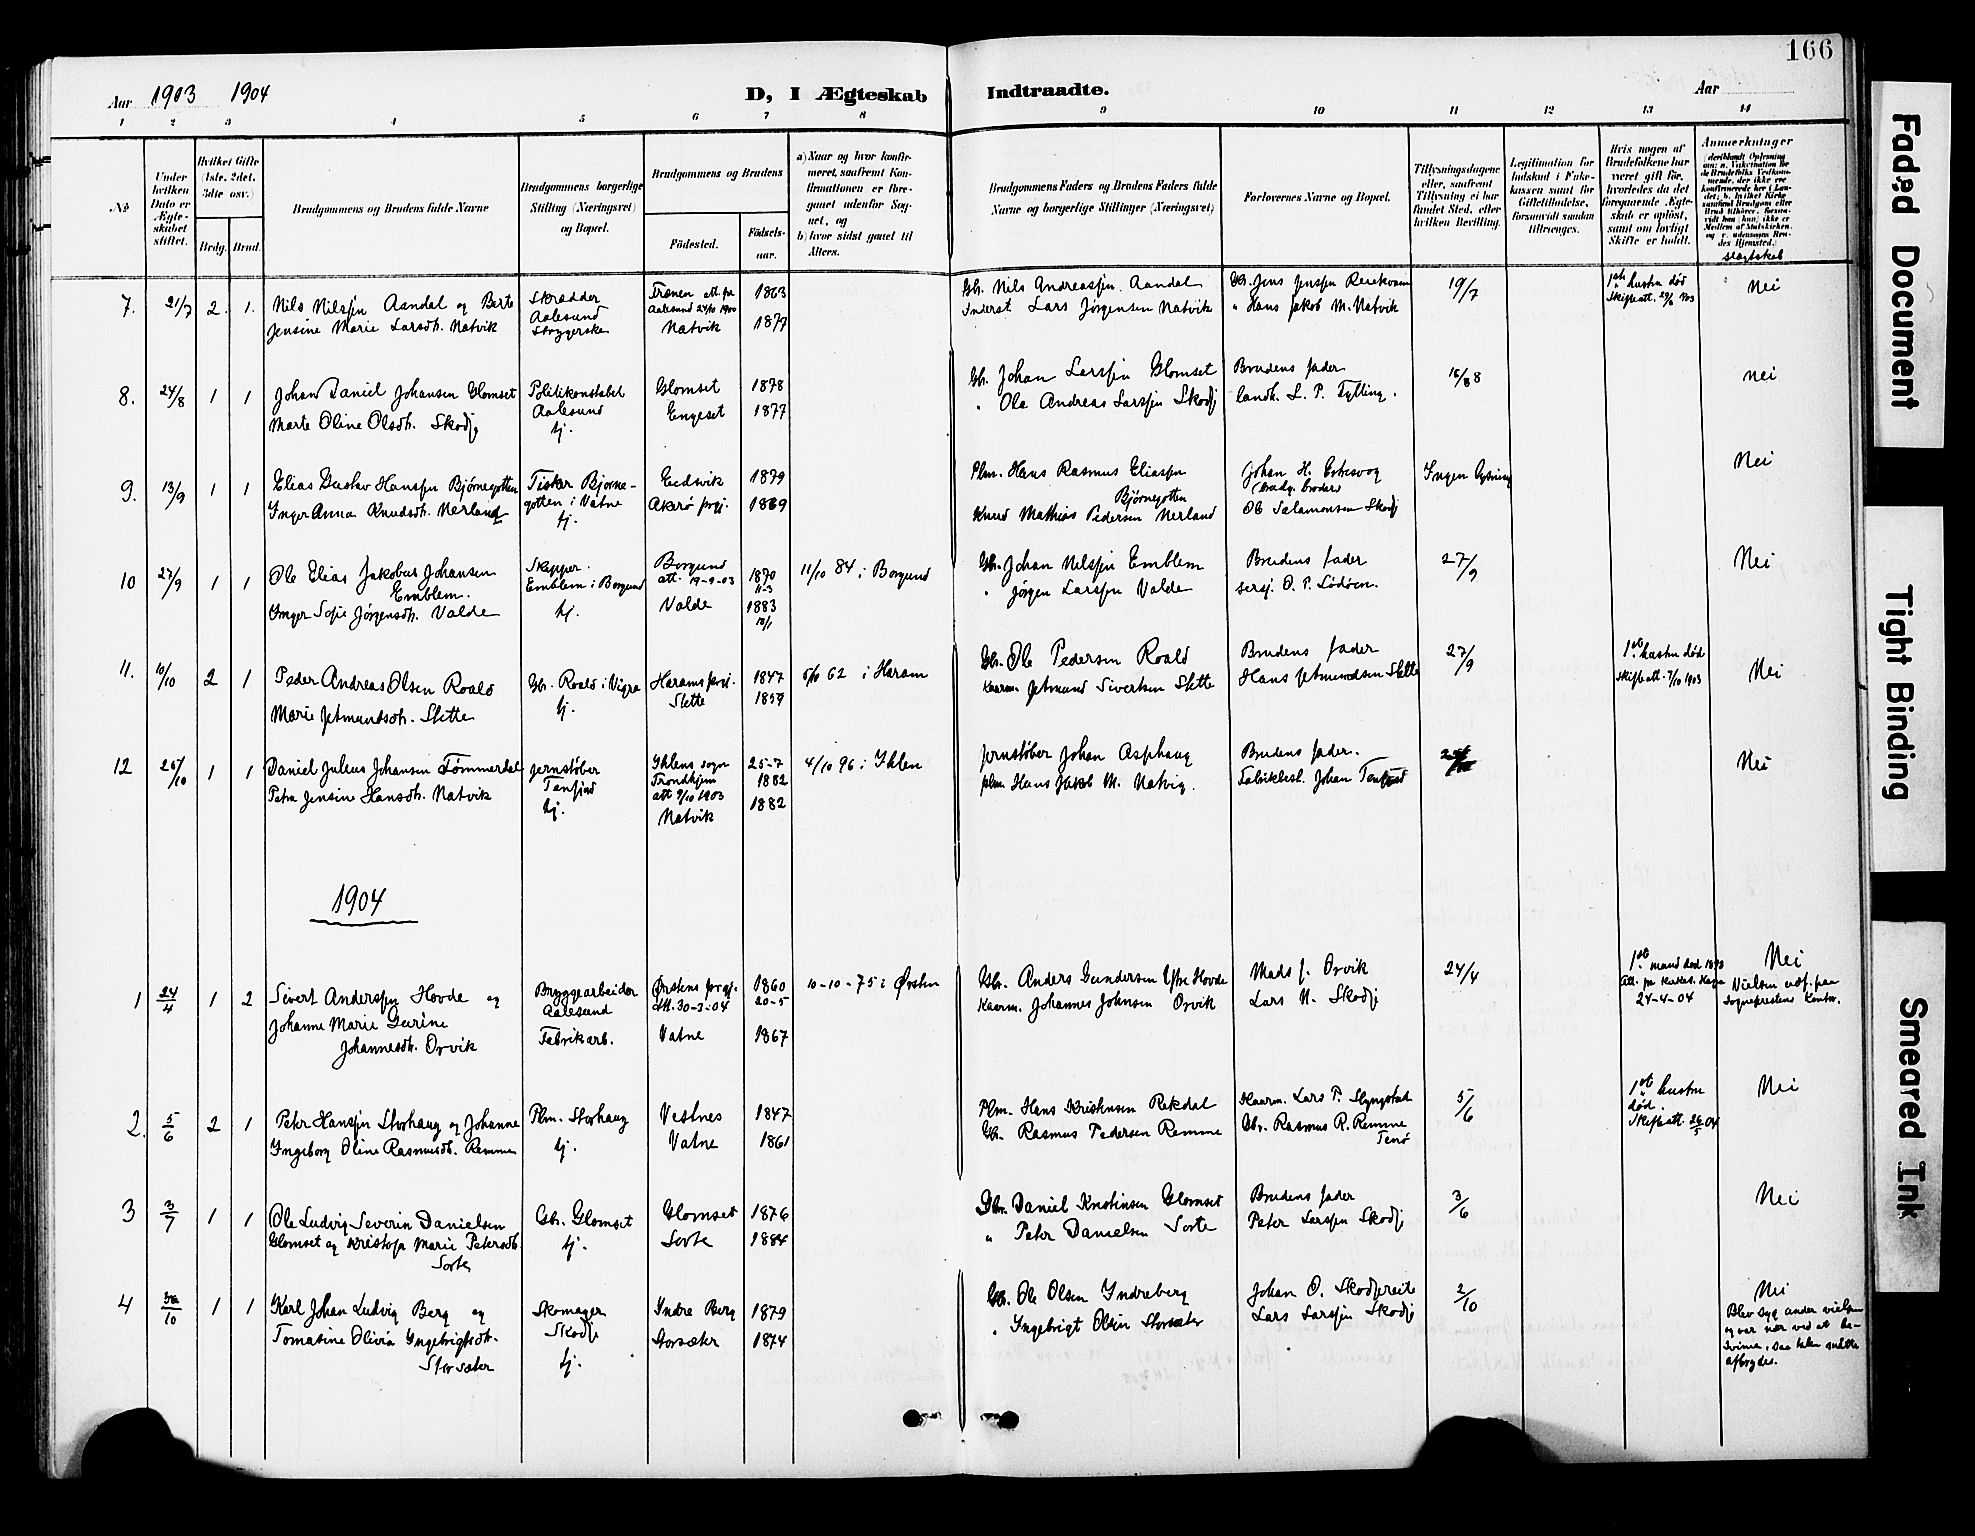 166
Aar 1903 1904
D, I Ægteskab Indtraadte.
Aar
1 2 3 4 5 6 7 8 9 10 11 12 13 14
No
Under hvilken Dato er Ægteskabet stiftet.
Hvilket Gifte (1ste, 2det, 3die osv.)
Brdg. Brud.
Brudgommens og Brudens fulde Navne
Brudgommens borgerlige Stilling (Næringsvei) og Bopæl.
Brudgommens og Brudens
Födested. Födsels-aar.
a) Naar og hvor konfir-
meret, saafremt Kon-
firmationen er fore-
gaaet udenfor Sog-
net, og
b) hvor sidst gaaet til
Alters.
Brudgommens Faders og Brudens Faders fulde
Navne og borgerlige Stillinger (Næringsvei)
Forlovernes Navne og Bopæl.
Tillysningsdagene
eller, saafremt
Tillysning ei har
fundet Sted, efter
hvilken Bevilling.
Legitimation for
Indskud i Enke-
kassen samt for
Giftetilladelse,
forsaavidt saadan
tiltrænges.
Hvis nogen af
Brudefolkene har
været gift før,
hvorledes da det
foregaaende Ægte-
skab er opløst,
samt om lovligt
Skifte er holdt.
Anmerkninger
slægtskab
7. 21/7 2. 1. Nils Nilssen Aandal og Berte
Jensine Marie Larsdt. Natvik
Skrædder
Aalesund
Strygerske
att fra
Aalesund 24/10 1900
Natvik
1863
1877
Gbr. Nils Andreassen Aandal
Inderst Lars Jörgensen Natvik
Gbr. Jens Jenssen Reiekvam
" Hans Jakob M. Natvik
19/7
1ste hustru död
Skifteatt.
Nei
8. 24/8 1 1 Johan Daniel Johansen Glomset
Marte Oline Olsdt. Skodj
Politikonstabel
Aalesund
hj.
Glomset
Engeset
1878
1877
Gbr. Johan Larssen Glomset
" Ole Andreas Larssen Skodj
Brudens fader
landh. L. P. Tylling.
nei
9. 13/9 1 1 Elias Gustav Hanssen Bjørnegotten
Inger Anna Knudsdt. Nerland
Fisker Bjørne-
gotten i Vatne
hj.
Eidsvik
Akerø prgj.
1879
1869
Plm. Hans Rasmus Eliassen
Bjørnegotten
Knud Mathias Pedersen Nerland
Johan H.
(brudg. broder)
Ole Salamonsen Skodj
Ingen lysning
Nei
10 27/9 1 1 Ole Elias Jakobus Johansen
Emblem.
Inger Sofie Jörgensdt. Valde
Skipper.
Emblem i Borgund
hj.
Borgund
att. 19-9-03
Valde
1870
11-3
1883
11/10 84 i Borgund
Gbr. Johan Nilssen Emblem
" Jörgen Larssen Valde
Brudens fader
sersj. O. P. Lödöen.
27/9
Nei
11. 10/10 2 1 Peder Andreas Olsen Roald
Marie Jetmundsdt. Slette
Gbr. Roald i Vigra
hj.
Harams prgj.
Slette
1847
1859
62 i Haram
Gbr. Ole Pedersen Roald
Kaarm. Jetmund Sivertsen Slette
Brudens fader
Hans Jetmundsen Slette
27/9
1ste hustru död
Skifteatt. 7/10 1903
Nei
12 25/10 1 1 Daniel Julius Johansen Tömmerdal
Petra Jensine Hansdt. Natvik
jernstöber
Tenfjord
hj.
Ihlens sogn
Trondhjem
att 9/10 1903
Natvik
25-7
1882
1882
4/10 96 i Ihlen
jernstöber Johan Asphaug
plm. Hans Jakob M. Natvig.
Brudens fader.
Fabrikbest. Johan Tenfjord
Nei
1904
1 24/4 1 2 Sivert Anderssen Hovde og
Johanne Marie Gurine
Johannesdt. Orvik
Bryggearbeider
Aalesund
Fabrikarb.
Ørstens prgj.
Att. 30-3-04
Vatne
1860
20-5
1867
10-10-75 i Ørsten
Gbr. Anders Gundersen Ytre Hovde
Kaarm. Johannes Johnsen Orvik
Mads J. Orvik
Lars N. Skodj
24/4
1ste mand död 1893
24-4-04
Nei
Vielsen udf. paa
Sogneprestens Kontor.
2. 5/6 2 1 Peter Hanssen Storhaug og Johanne
Ingeborg Oline Rasmusdt. Remmen
Plm. Storhaug
hj.
Vestnes
Vatne
1847
1861
Plm. Hans Kristensen Rekdal
Gbr. Rasmus Pedersen Remme
Kaarm. Lars P. Slyngstad
Gbr. Rasmus R. Remme
Tenö
5/6
1ste hustru
död.
Skifteatt. 26/5 04
Nei
3 3/7 1 1 Ole Ludvig Severin Danielsen
Glomset og Kristofa Marie Petersdt.
Sorte
Gbr. Glomset
hj.
Glomset
Sorte
1876
1884
Gbr. Daniel Knutinsen Glomset
" Peter Danielsen Sorte
Brudens fader
Peter Larssen Skodj
3/6
Nei
4 1 1 Karl Johan Ludvig Berg og
Tomasine Olivia Ingebrigtsdt.
Storsæter
Skomager
Skodje
hj.
Indre Berg
Storsæter
1879
1874
Gbr. Ole Olsen Indreberg
" Ingebrigt Olsen Storsæter
Johan O. Skodjereite
Lars Larssen Skodj
2/10
Nei
Blev syg under vielsen
og var nær ved at be-
svime, saa talen maatte
afbrydes.
Faded Document
Tight Binding
Smeared Ink